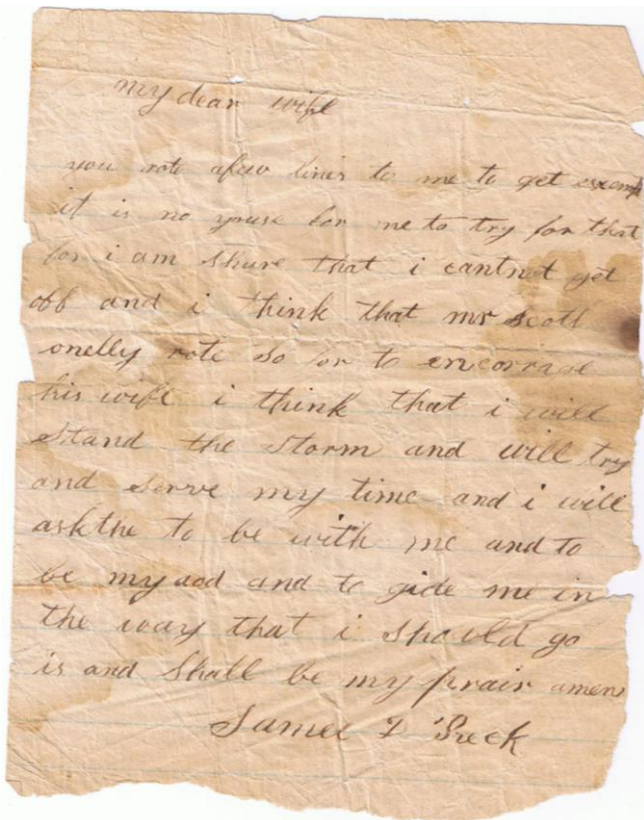 my dear wife
you rote afew lines to me to get exemp
it is no youse for me to try for that
for i am shure that i cantnot get
off and i think that mr scott
onelly rote so for to encorrige
his wife i think that i will
Stand the Storm and will try
and serve my time and i will
ask the to be with me and to
be my aod and to gide me in
the way that i should go
is and Shall be my prair amen